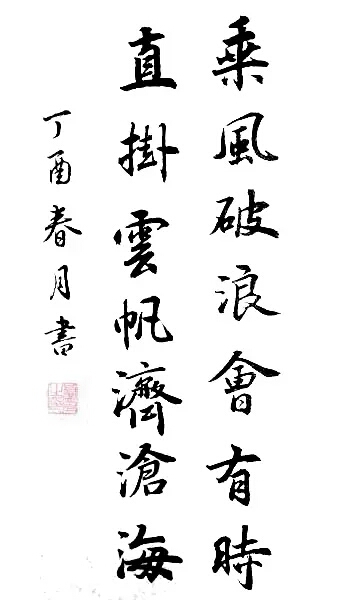 乘風破浪會有時
直掛雲帆濟滄海
丁酉春月書